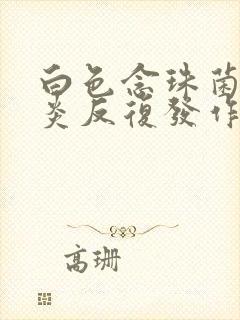 白色念珠菌
炎反復發作
高珊